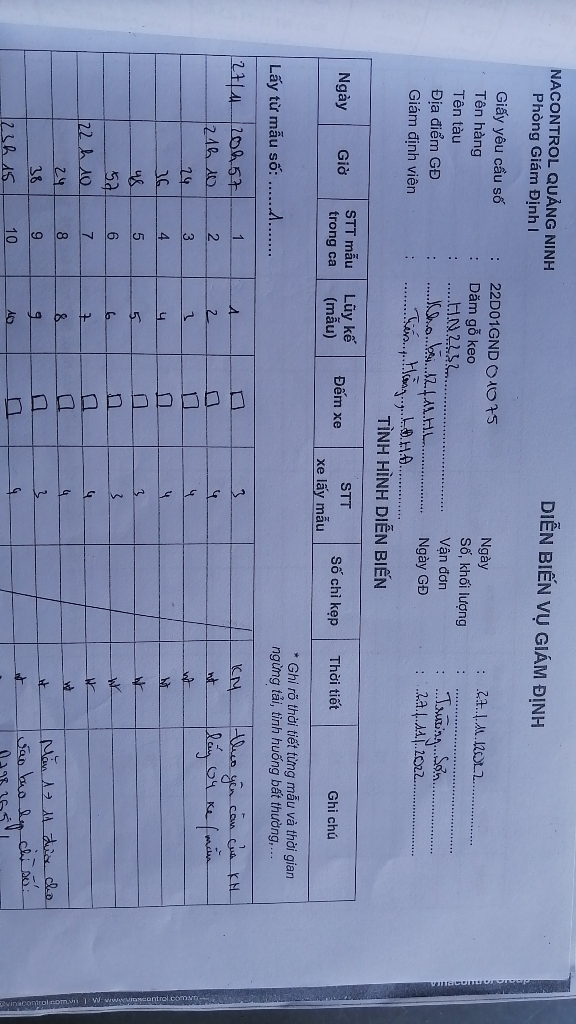 NACONTROL QUẢNG NINH
Phòng Giám Định I
DIỄN BIẾN VỤ GIÁM ĐỊNH
Giấy yêu cầu số : 22D01GND 01075
Ngày : 27/11/2022
Tên hàng : Dăm gỗ keo
Số, khối lượng :
Tên tàu : HN2232
Vận đơn : Trường Sơn
Địa điểm GĐ :
Ngày GĐ : 27/11/2022
Giám định viên :
TÌNH HÌNH DIỄN BIẾN
Ngày Giờ STT mẫu trong ca Lũy kế (mẫu) Đếm xe STT xe lấy mẫu Số chì kẹp Thời tiết Ghi chú
Lấy từ mẫu số: ......1.......
* Ghi rõ thời tiết từng mẫu và thời gian
ngừng tải, tình huống bất thường,...
27/11 20h57 1 1 □ 3 KM - theo yêu cầu của KH
21h10 2 2 □ 4 nt lấy 04 xe/mẫu
24 3 3 □ 4 nt
36 4 4 □ 4 nt
48 5 5 □ 3 nt
57 6 6 □ 3 nt
22h10 7 7 □ 4 nt
24 8 8 □ 4 nt
38 9 9 □ 3 nt Mẫu 1 → 11 được cho
23h15 10 10 □ 4 nt vào bao kẹp chì số:
Vinacontrol Group
@vinacontrol.com.vn | W: www.vinacontrol.com.vn